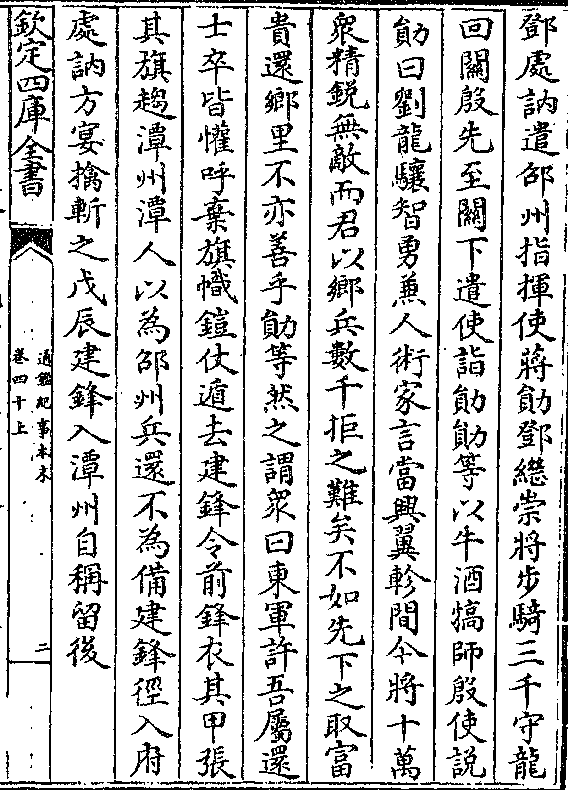 鄧處訥遣邵州指揮使蔣勛鄧繼崇將步騎三千守龍
回關殷先至關下遣使詣勛勛等以牛酒犒師殷使説
勛曰劉龍驤智勇兼人術家言當興翼軫間今將十萬
衆精鋭無敵而君以鄉兵數千拒之難矣不如先下之取富
貴還鄉里不亦善乎勛等然之謂衆曰東軍許吾屬還
士卒皆懽呼棄旗幟鎧仗遁去建鋒令前鋒衣其甲張
其旗趨潭州潭人以為邵州兵還不為備建鋒徑入府
處訥方宴擒斬之戊辰建鋒入潭州自稱留後
欽定四庫全書
通鑑紀事本末
卷四十上
二